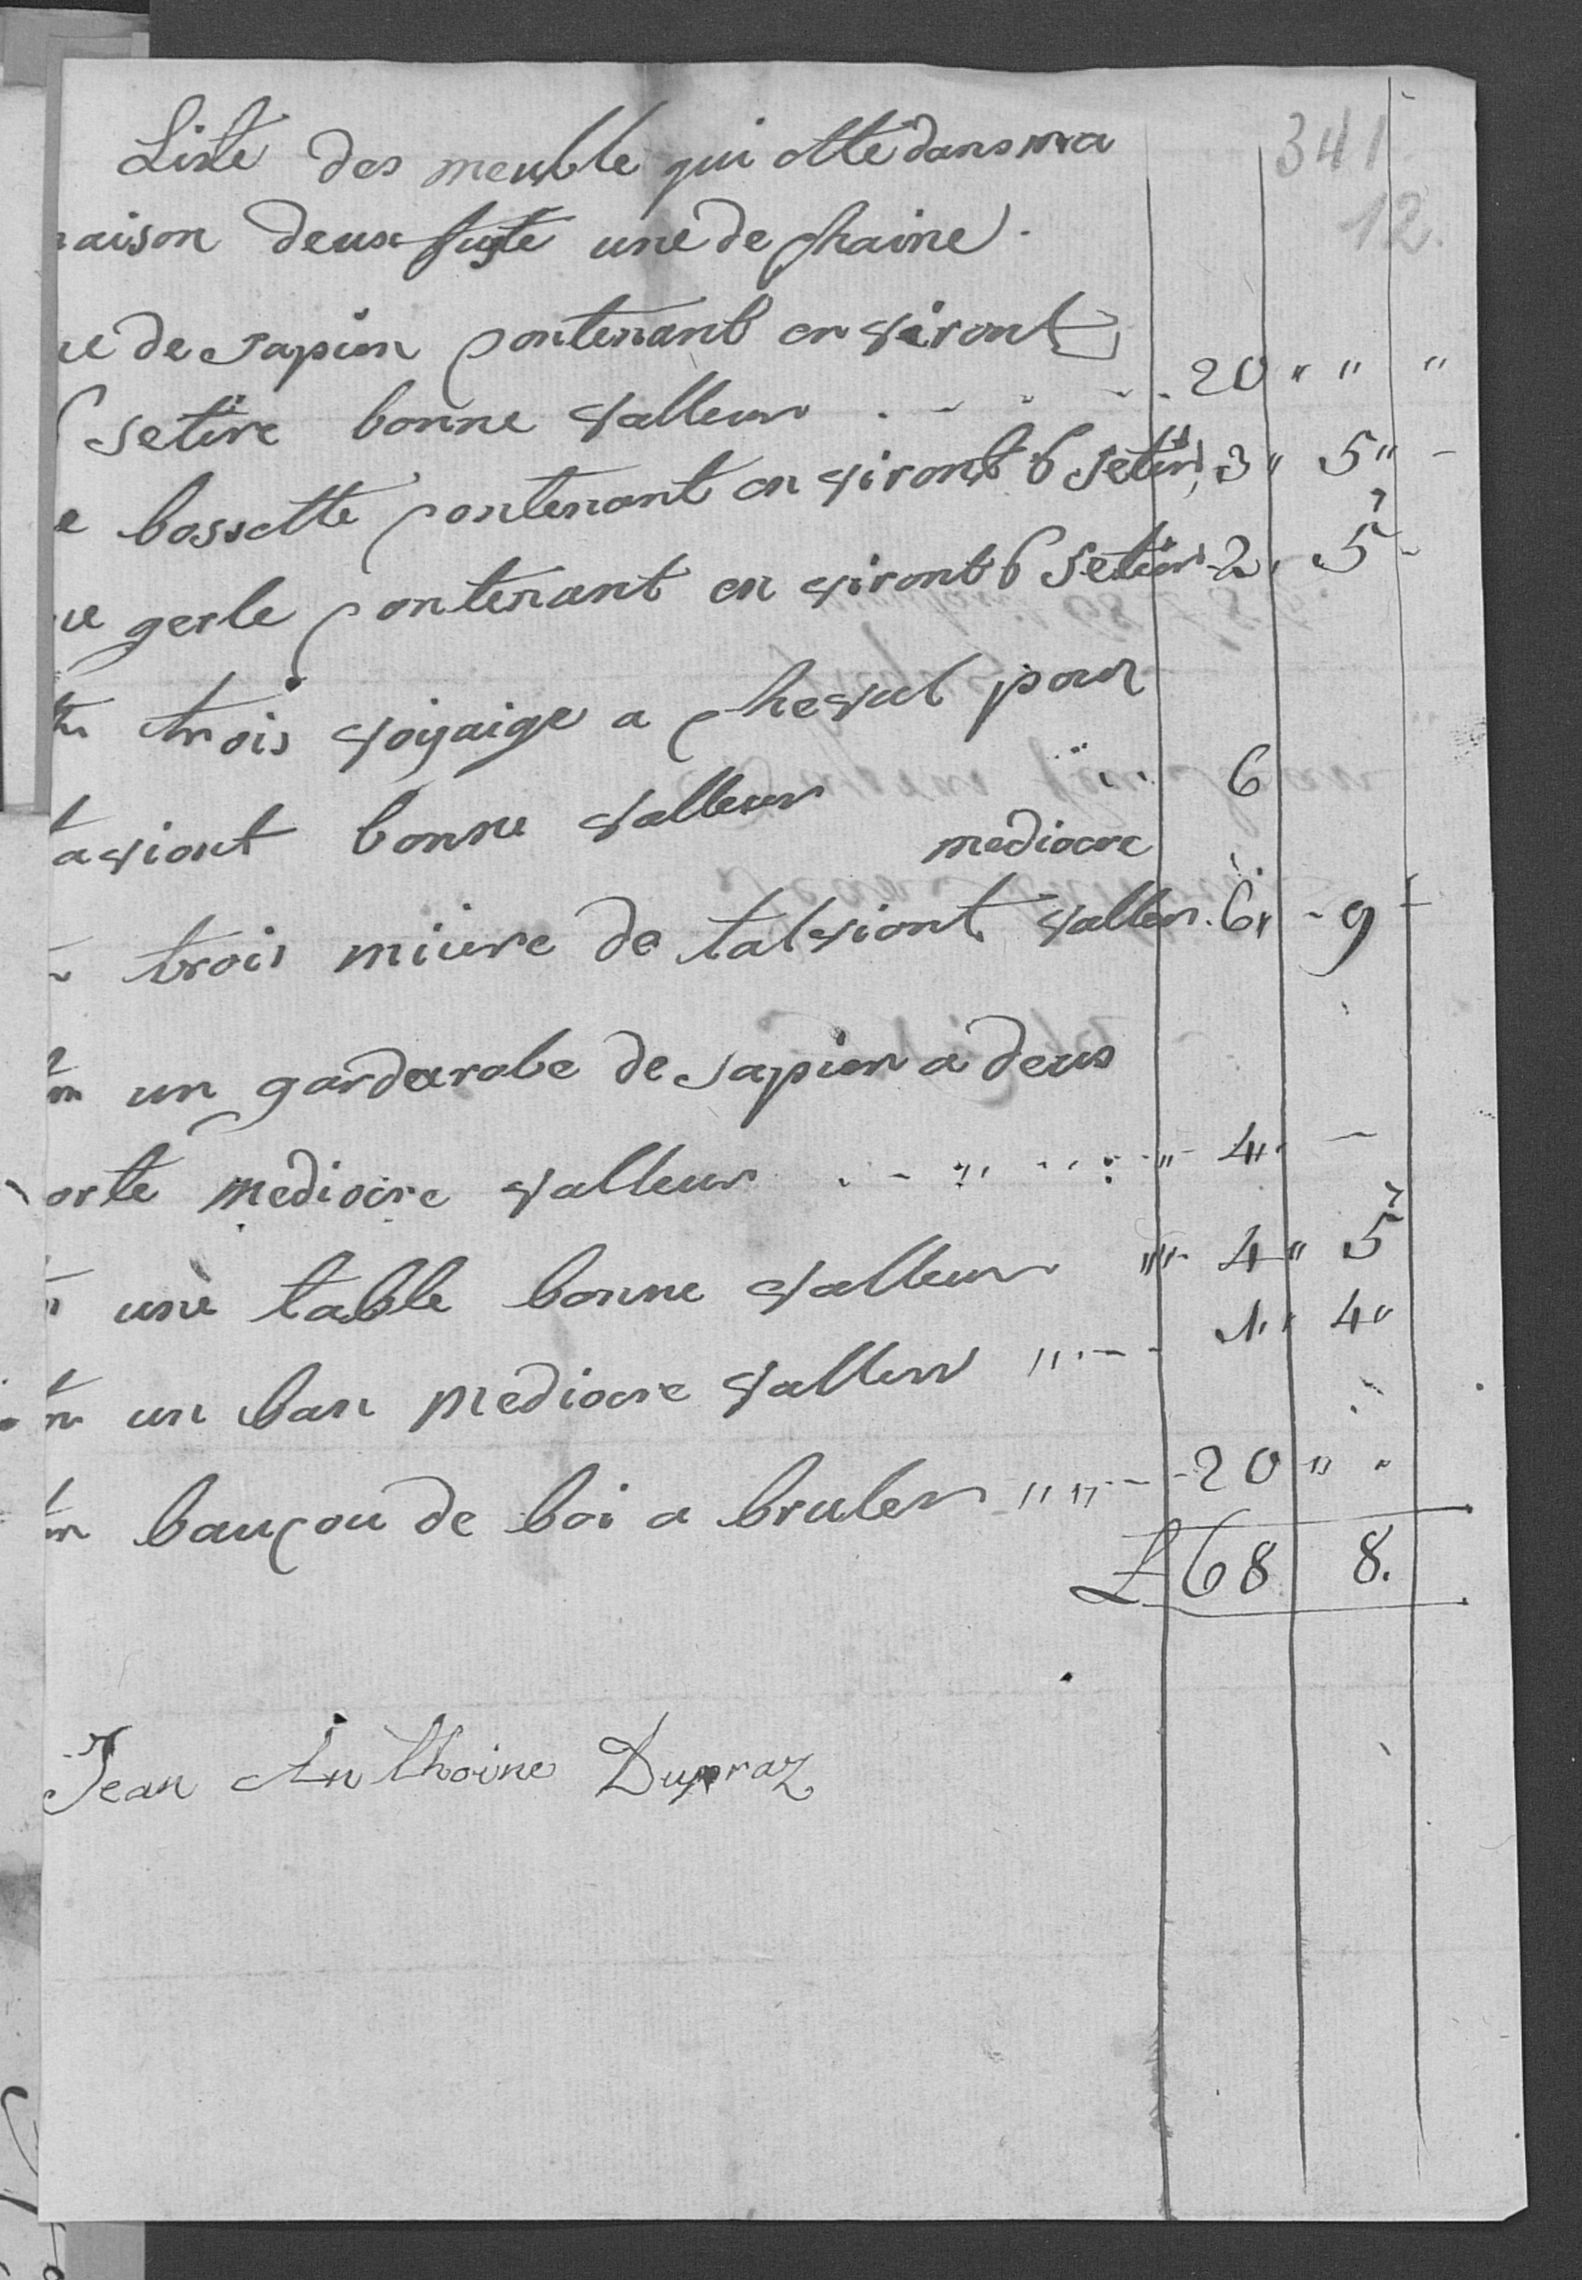 341
12.
Liste des meuble qui otte dans ma
naison deux fuste une de chaine.
ue de sapin contenant en viront
6 setire bonne valleur . - - - . 20 " " "
e bossette contenant en viront 6 setier 3 " 5 " -
ue gerle contenant en viront 6 setier 2 , 5 -
trois voijaige a cheval pour
aviont bonne valleur 6
mediocre
trois miure de talviont valleur . 6 , - 9
un garderobe de sapien a deus
orte mediocre valleur . - " . . : " - 4 " -
une table bonne valleur "" - 4 " 5
un ban mediocre valleur " . - - 1 " 4 "
baucou de boi a bruler " " - - - 20 " "
£ 68 8.
Jean Anthoine Dupraz